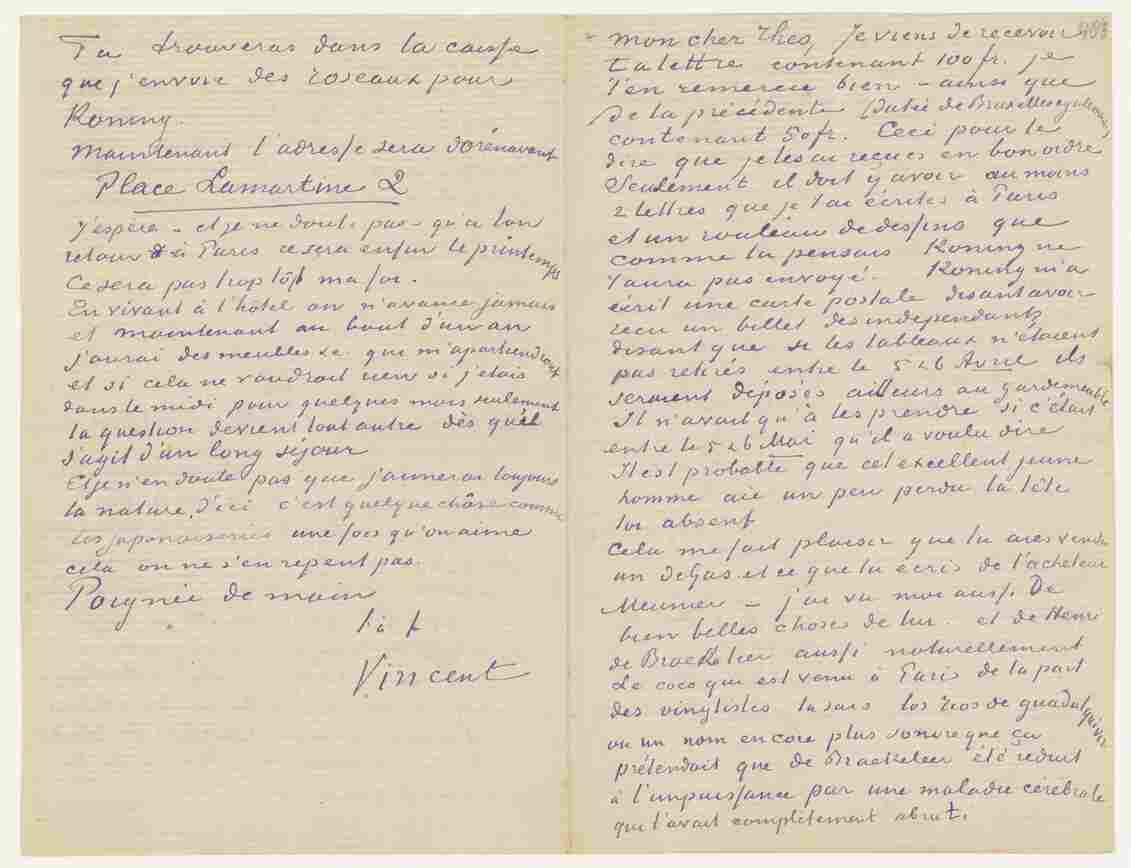 Tu trouveras dans la caisse
que j'envoie des roseaux pour
Koning.
Maintenant l'adresse sera dorénavant
Place Lamartine 2
J'espère – et je ne doute pas qu'à ton
retour à Paris ce sera enfin le printemps
Ce sera pas trop tôt ma foi.
En vivant à l'hôtel on n'avance jamais
et maintenant au bout d'un an
j'aurai des meubles &c. qui m'apartiendront
et si cela ne vaudrait rien si j'étais
dans le midi pour quelques mois seulement
la question devient tout autre dès qu'il
s'agit d'un long séjour
Et je n'en doute pas que j'aimerai toujours
la nature d'ici c'est quelque chôse comme
les japonaiseries une fois qu'on aime
cela on ne s'en repent pas.
Poignée de main
t. à t
Vincent
mon cher Theo, Je viens de recevoir
ta lettre contenant 100 fr. je
t'en remercie bien – ainsi que
de la précédente (datée de Bruxelles
contenant 50 fr. Ceci pour te
dire que je les ai reçues en bon ordre
Seulement il doit y avoir au moins
2 lettres que je t'ai écrites à Paris
et un rouleau de dessins que
comme tu pensais Koning ne
t'aura pas envoyé. Koning m'a
écrit une carte postale disant avoir
reçu un billet des indépendants
disant que si les tableaux n'étaient
pas retirés entre le 5 & 6 Avril ils
seraient déposés ailleurs au gardemeuble
Il n'avait qu'à les prendre si c'était
entre le 5 & 6 Mai qu'il a voulu dire
Il est probable que cet excellent jeune
homme aie un peu perdu la tête
toi absent
Cela me fait plaisir que tu aies vendu
un deGas et ce que tu écris de l'acheteur
Meunier – j'ai vu moi aussi De
bien belles choses de lui. et de Henri
de Braekeleer aussi naturellement
Le coco qui est venu à Paris de la part
des vingtistes tu sais los rios de guadalquivir
ou un nom encore plus sonore que ça
prétendait que de Braekeleer été reduit
à l'impuissance par une maladie cérébrale
qui l'avait complètement abruti.